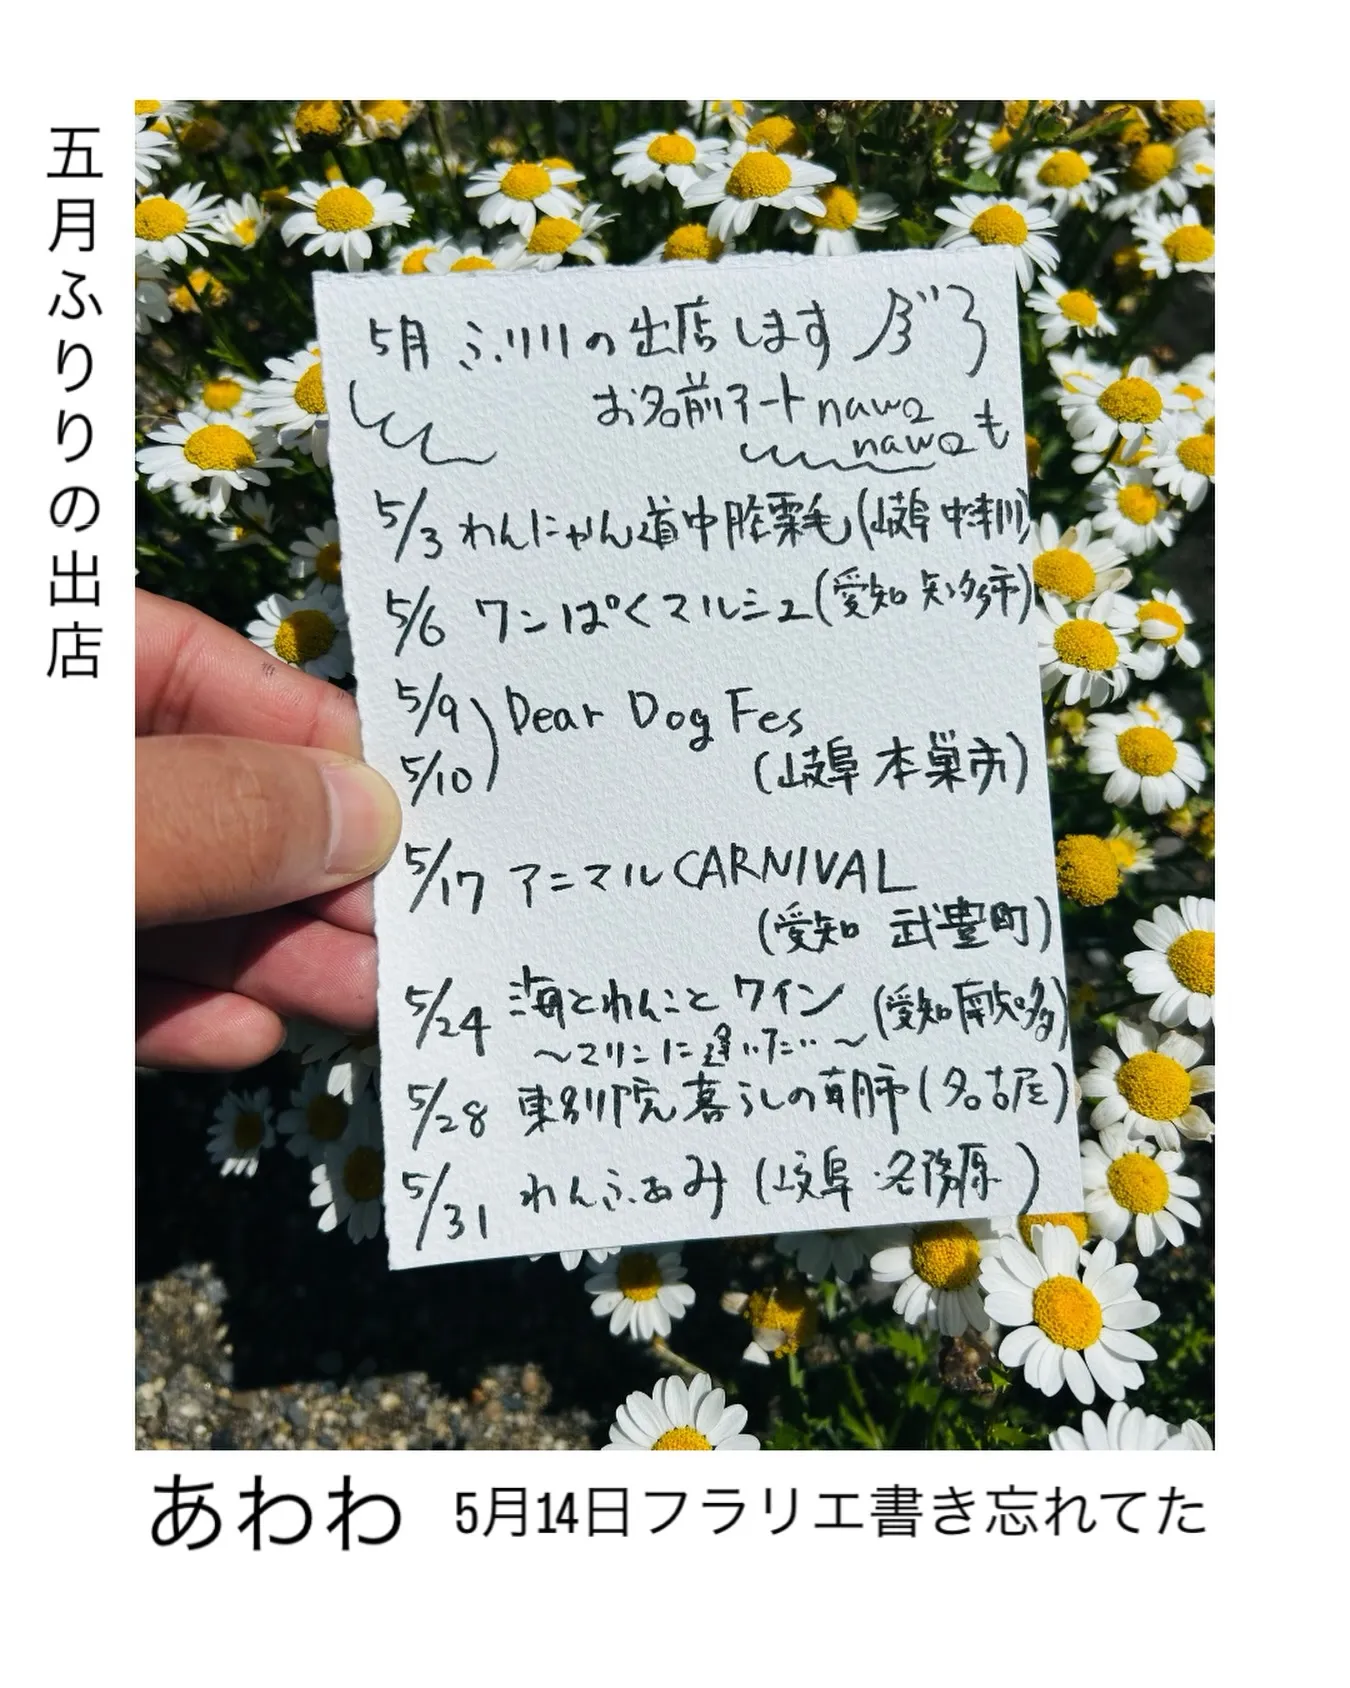 五月ふりりの出店
5月 ふりりの出店します
お名前アートnawa
nawaも
5/3 わんにゃん道中膝栗毛(岐阜 中津川)
5/6 ワンぱくマルシェ(愛知 知多市)
5/9
5/10
Dear Dog Fes
(岐阜 本巣市)
5/17 アニマルCARNIVAL
(愛知 武豊町)
5/24 海とわんことワイン (愛知 南知多)
〜マリンに逢いたい…〜
5/28 東別院 暮らしの朝市(名古屋)
5/31 わんふぁみ (岐阜・各務原)
あわわ 5月14日フラリエ書き忘れてた